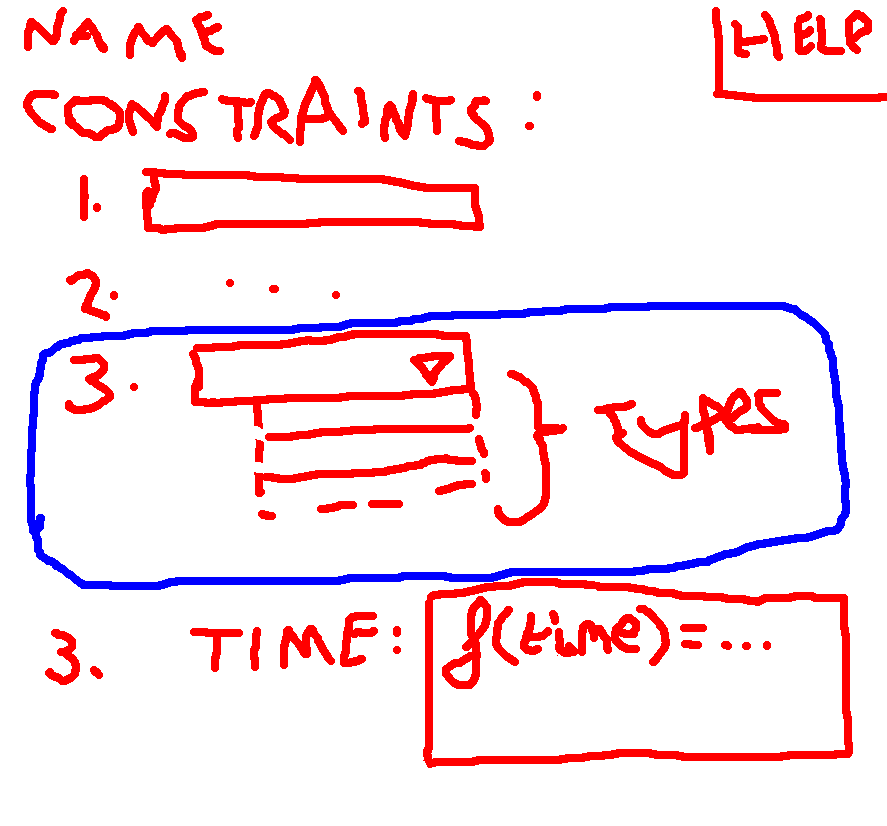 NAME
HELP
CONSTRAINTS:
1.
2. ...
3.
Types
3. TIME: f(time)=...